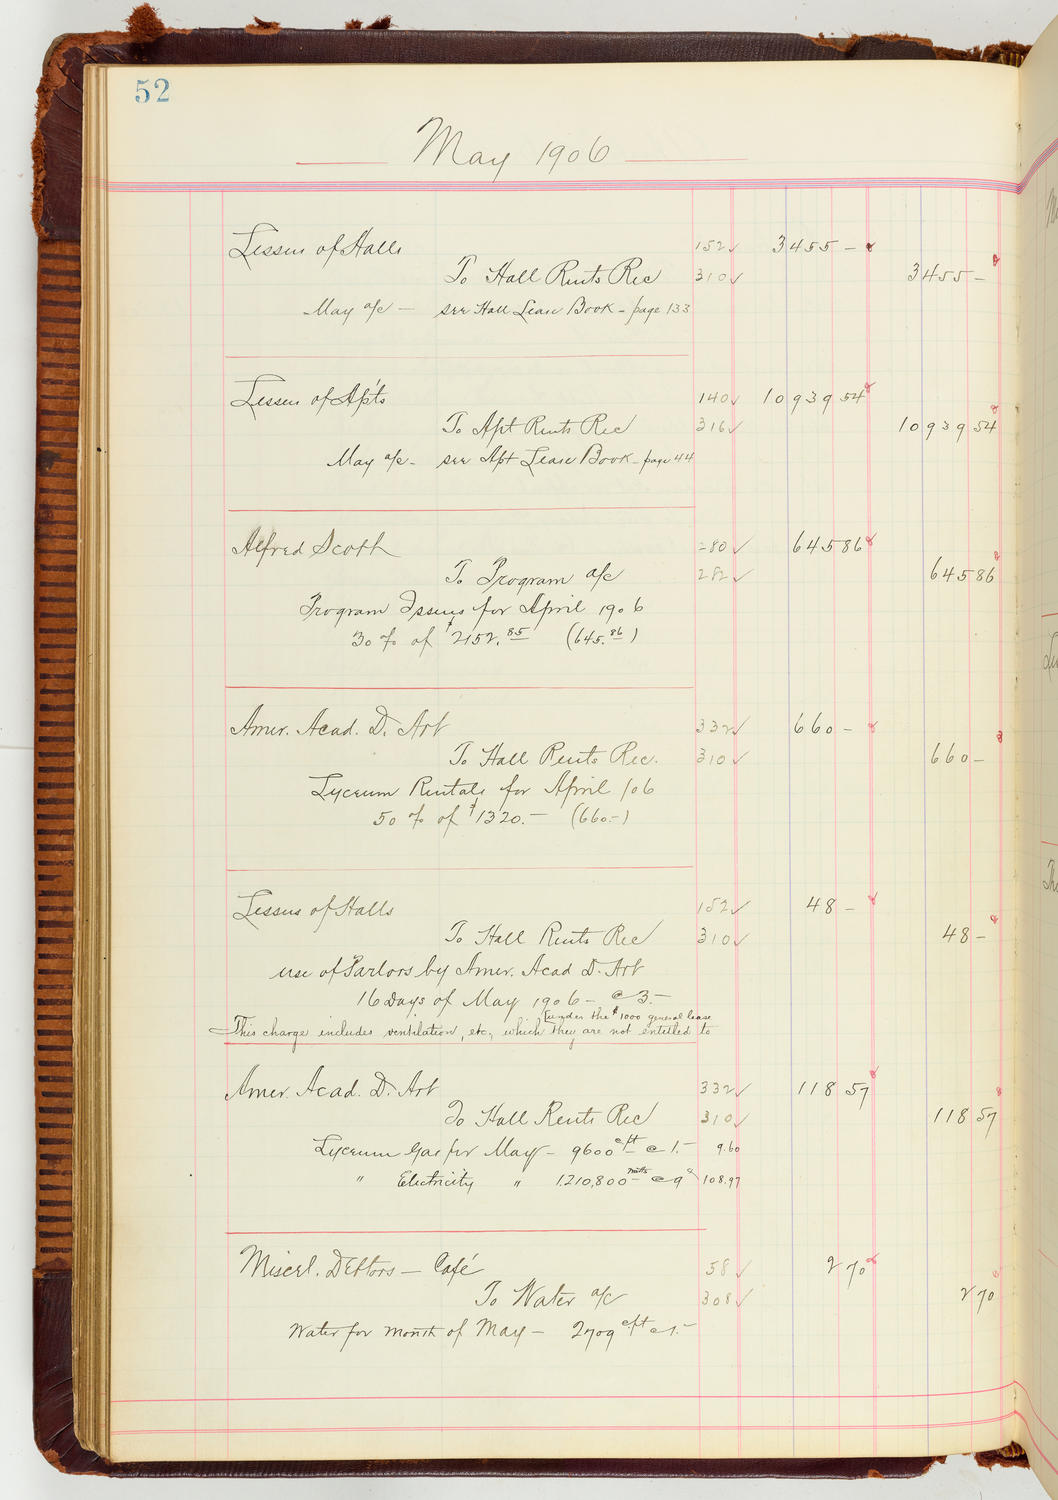 52
May 1906
Lessees of Halls 152✓ 3455 —
To Hall Rents Rec 310✓ 3455 —
May a/c — see Hall Lease Book — page 133
Lessees of Apts 140✓ 10939 54
To Apt Rents Rec 316✓ 10939 54
May a/c — see Apt Lease Book — page 44
Alfred Scott 280✓ 645 86
To Program a/c 282✓ 645 86
Program Issues for April 1906
30% of $2152.85 (645.86)
Amer. Acad. D. Art 332✓ 660 —
To Hall Rents Rec. 310✓ 660 —
Lyceum Rentals for April /06
50% of $1320.— (660.—)
Lessees of Halls 152✓ 48 —
To Hall Rents Rec 310✓ 48 —
use of Parlors by Amer. Acad D. Art
16 Days of May 1906 — @ 3.—
This charge includes ventilation, etc, which they are not entitled to
under the $1000 general lease
Amer. Acad. D. Art 332✓ 118 57
To Hall Rents Rec 310✓ 118 57
Lyceum Gas for May — 9600 cft @ 1.— 9.60
" Electricity " 1210,800 watts @ 9c 108.97
Miscel. Debtors — Café 58✓ 2 70
To Water a/c 308✓ 2 70
Water for month of May — 2709 cft @ 1.—